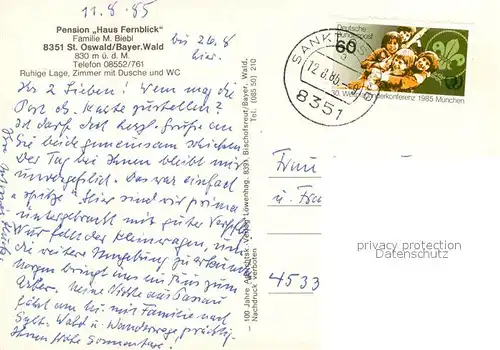 11.8.85
Pension „Haus Fernblick"
Familie M. Biebl
8351 St. Oswald/Bayer.Wald
830 m ü. d. M.
Telefon 08552/761
Ruhige Lage, Zimmer mit Dusche und WC
bis 26.8
hier.
Ihr 2 Lieben! Wem mag die
Post die Karte zustellen?
Ich darf doch herzl. Grüße an
Sie beide gemeinsam schicken
Der Tag bei Ihnen bleibt mir
unvergeßlich. Das war einfach
spitze. Hier sind wir prima
untergebracht mit guter
die weitere Umgebung zu
Morgen bringt uns ein Bus zum
Arber. Meine Nichte aus Passau
fährt am mit Familie nach
Sylt. Wald u. Wanderwege prächtig.
Ihnen frohe Sommertage.
- 100 Jahre Verlag Löwenhag, 8391 Bischofsreut/Bayer. Wald,
Tel. (085 50) 210
Nachdruck verboten
Deutsche
Bundespost
60
30. Weltpfadfinderkonferenz 1985 München
SANKT OSWALD
12.8.85
8351
Frau
u. Frau
4533
privacy protection
Datenschutz